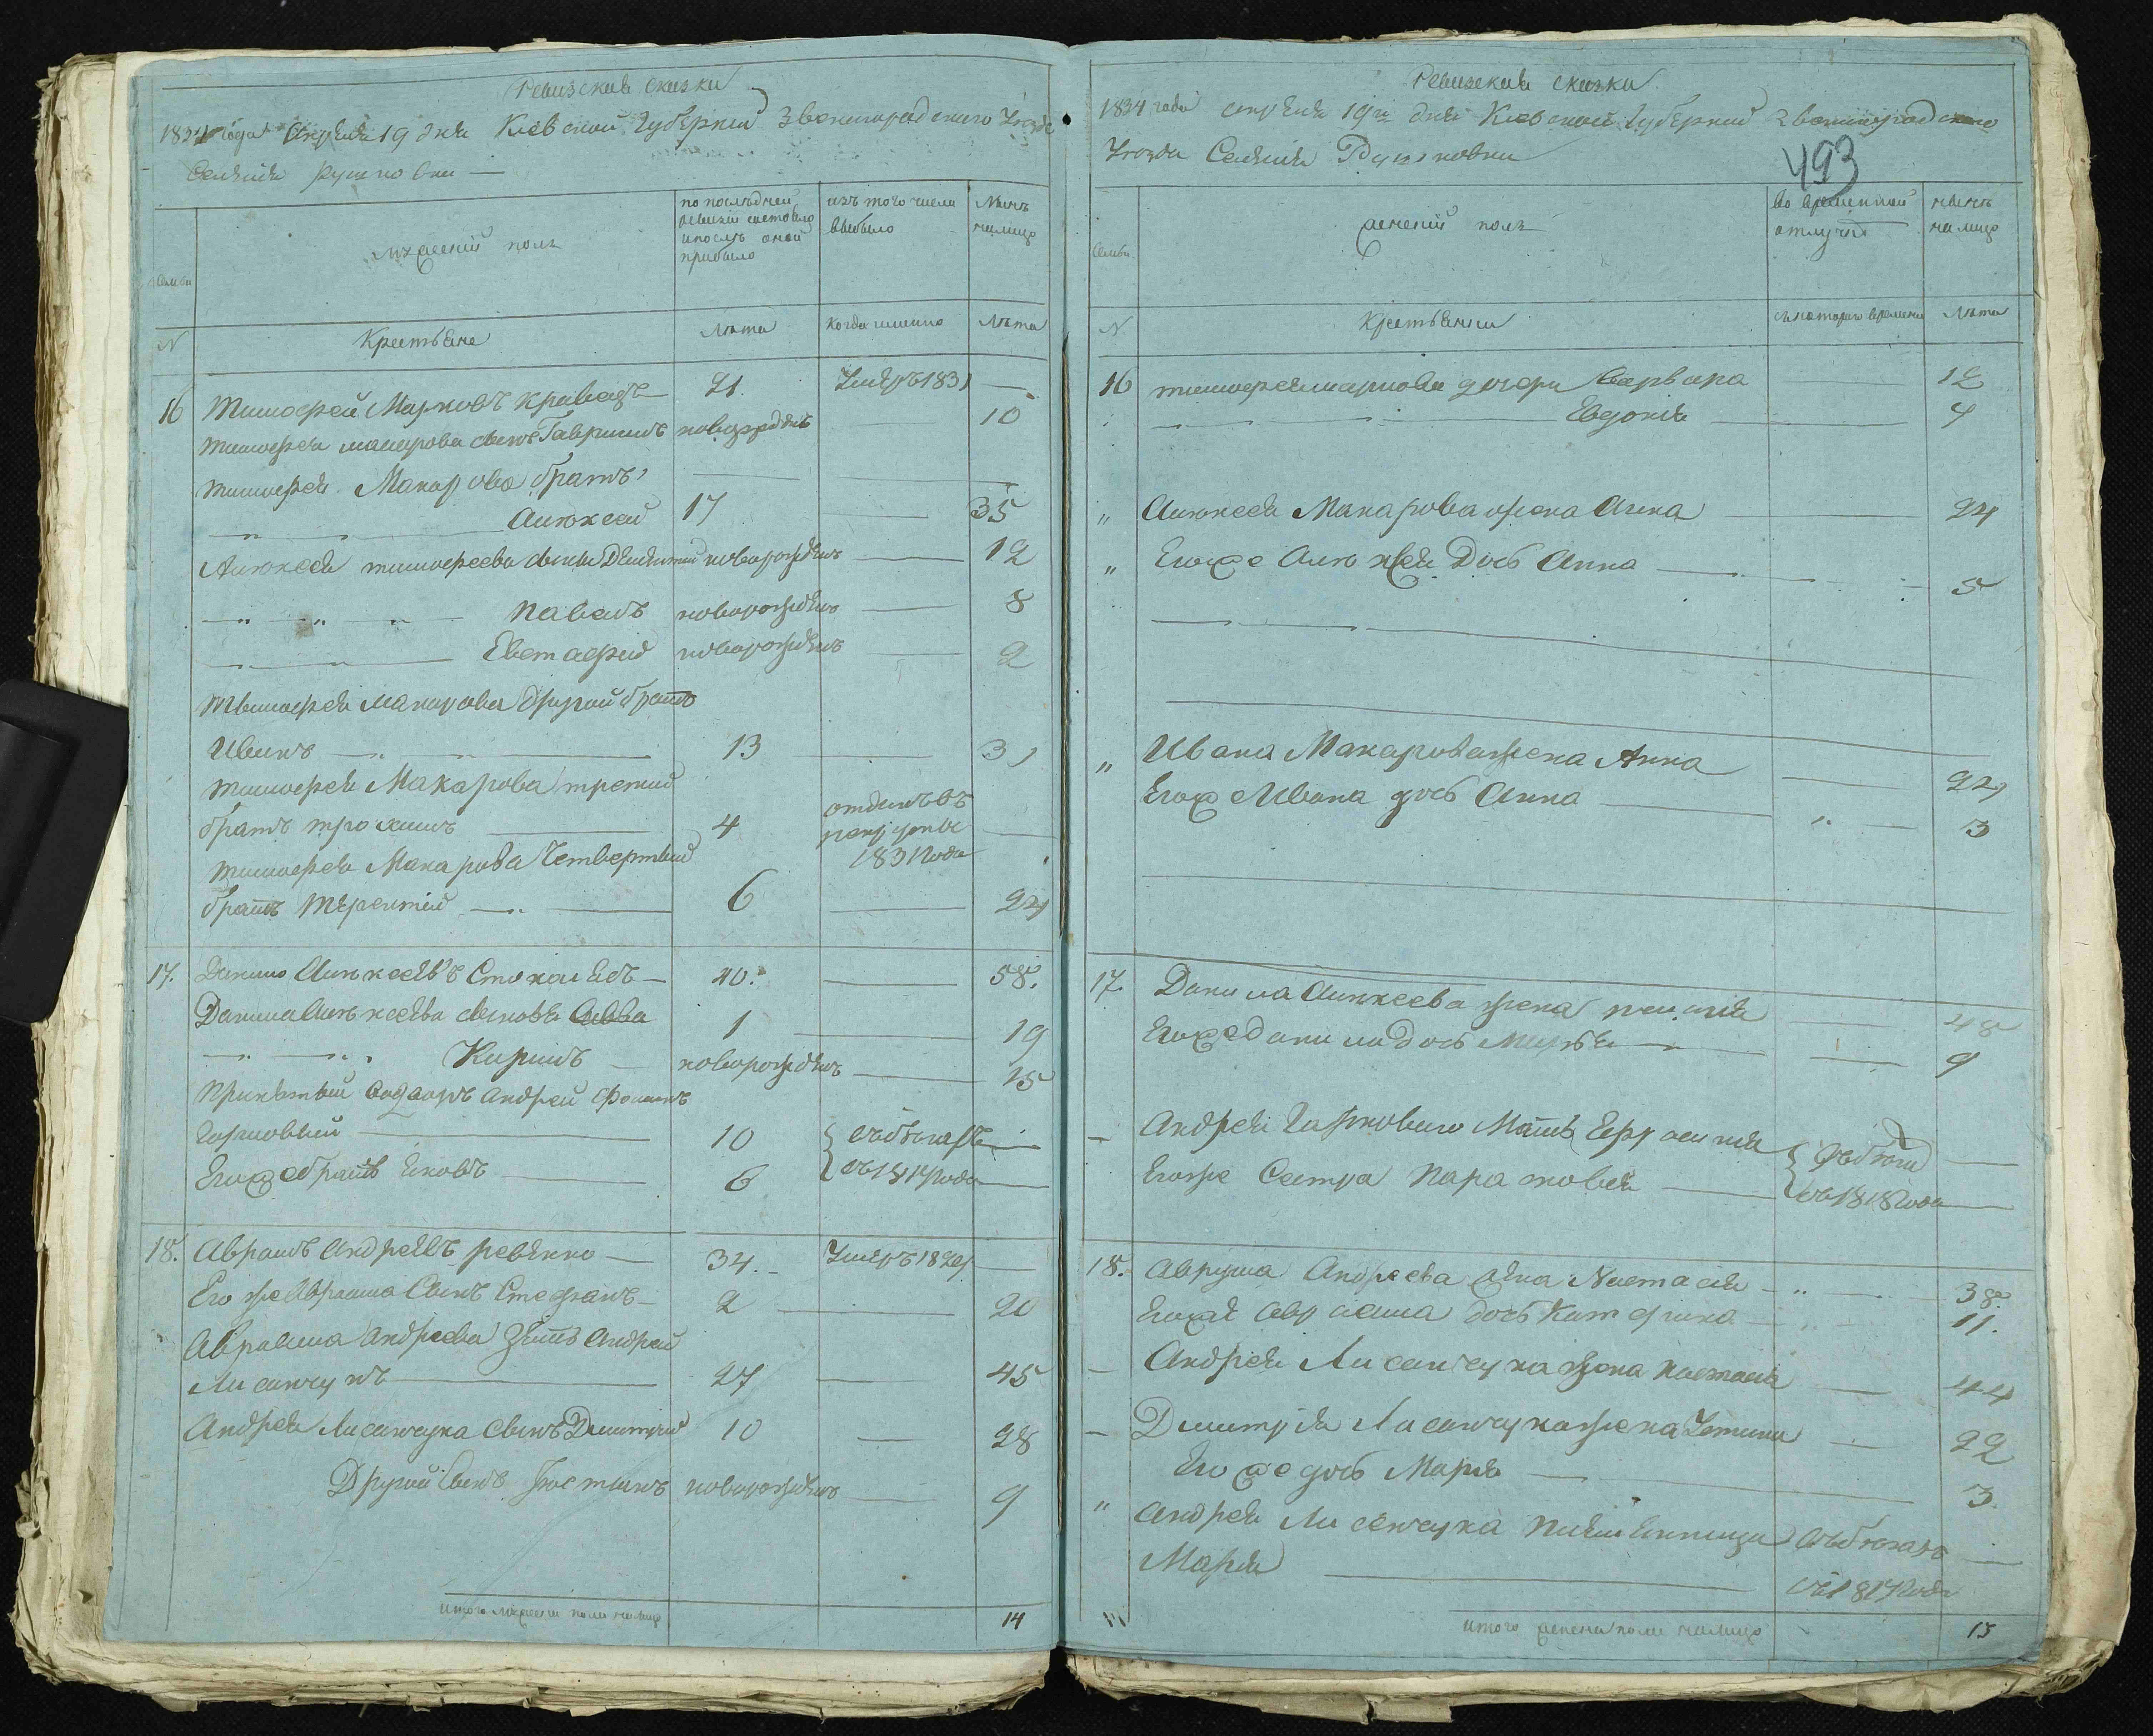 Ревизская сказки
1834 года апреля 19 дня Киевской Губернии Звенигородского Уезда
Селения Рыжовки
Семьи
мужеский полъ
по последней ревизии состояло и после оной прибыло
изъ того числа выбыло
Ныне на лицо
N
Крестьяне
Лета
когда именно
Лета
16 Тимофей Марковъ Кравецъ 21. Умеръ 1831
Тимофея макарова сынъ Гаврилъ новорожденъ 10
Тимофея Макарова братъ
Алексей 17 35
Алексея тимофеева сынъ новорожденъ 12
Павелъ новорожденъ 8
Евстафий новорожденъ 2
Тимофея макарова другой братъ
Иванъ 13 31
Тимофея Макарова третий
братъ трохимъ 4 отданъ въ рекруты 1831 года
Тимофея Макарова Четвертый
братъ Терентий 6 24
17. Данило Алексеевъ 40. 58.
Данила Алексеева сыновья Савва 1 19
Кирилъ новорожденъ 15
Принятый Андрей
10 { въ бегахъ
Егоже братъ Яковъ 6 съ 1814 года
18. Аврамъ Андреевъ ревенко 34. Умеръ 1824
Его же Аврама Сынъ Стефанъ 2 20
Аврама Андреева зять Андрей
Лисанчукъ 27 45
Андрея Лисанчука сынъ Дмитрий 10 28
Другой Сынъ новорожденъ 9
итого мужеска пола налицо 14
Ревизская сказки
1834 года апреля 19го дня Киевской Губернии Звенигородского
Уезда Селения Рыжовки
493
Семьи
женский полъ
Во временной отлучке
ныне на лицо
N.
Крестьянки
съ которого времени
Лета
16 тимофея маркова дочери Варвара 12
Евдокия 4
" Алексея Макарова жена Анна 24
" Егоже Алексея Дочь Анна 5
" Ивана Макарова жена Анна 29
Егоже Ивана дочь Анна 3
17. Данила Алексеева жена 48
Егоже данила дочь Марья 9
Андрея Мать { въ бегах
Егоже Сестра Парасковея съ 1818 года
18. Аврама Андреева жена Настасия 38.
Егоже аврама дочь Катерина 11.
Андрея Лисанчука жена Настасия 44
Дмитрия Лисанчука жена Устина 22
Его же дочь Марья 3.
" Андрея Лисанчука племянница въ бегахъ
Марья съ 1817 года
итого женска пола налицо 13